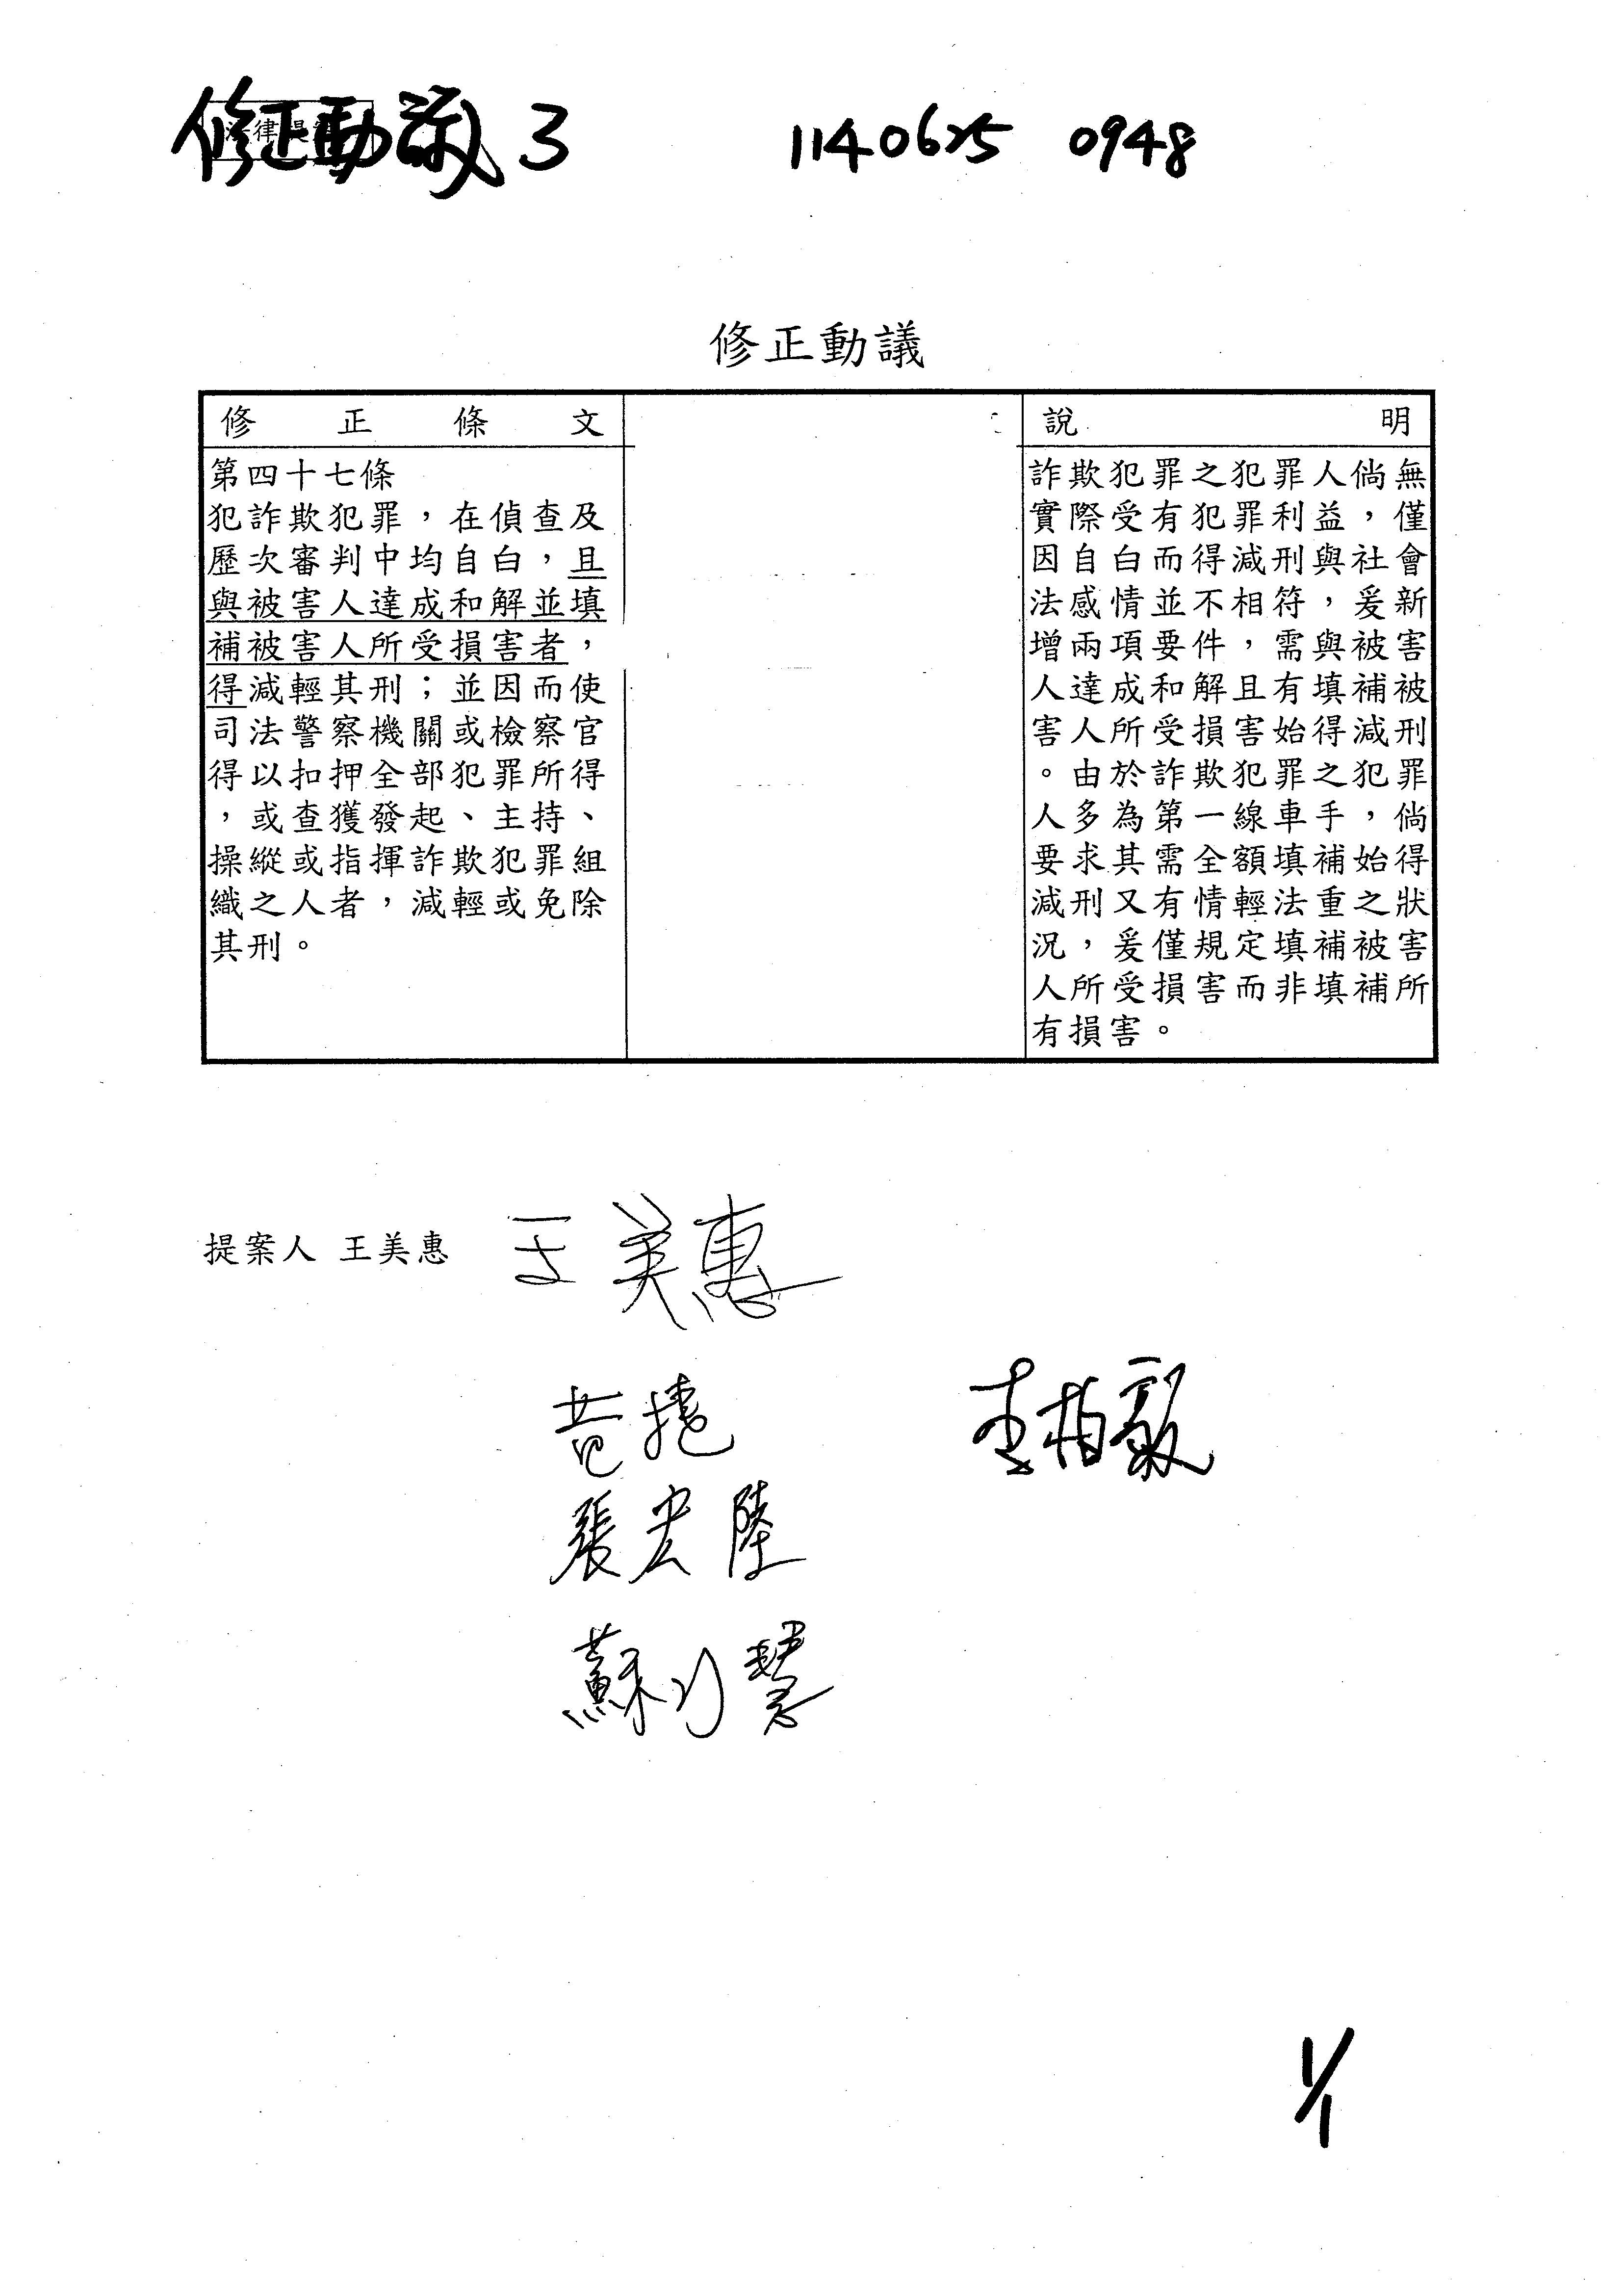 修正動議 3
1140625 0948
修正動議
修正條文
說明
第四十七條
犯詐欺犯罪，在偵查及
歷次審判中均自白，且
與被害人達成和解並填
補被害人所受損害者，
得減輕其刑；並因而使
司法警察機關或檢察官
得以扣押全部犯罪所得
，或查獲發起、主持、
操縱或指揮詐欺犯罪組
織之人者，減輕或免除
其刑。
詐欺犯罪之犯罪人倘無
實際受有犯罪利益，僅
因自白而得減刑與社會
法感情並不相符，爰新
增兩項要件，需與被害
人達成和解且有填補被
害人所受損害始得減刑
。由於詐欺犯罪之犯罪
人多為第一線車手，倘
要求其需全額填補始得
減刑又有情輕法重之狀
況，爰僅規定填補被害
人所受損害而非填補所
有損害。
提案人 王美惠 王美惠
黃捷
李柏毅
張宏陸
蘇巧慧
1/1